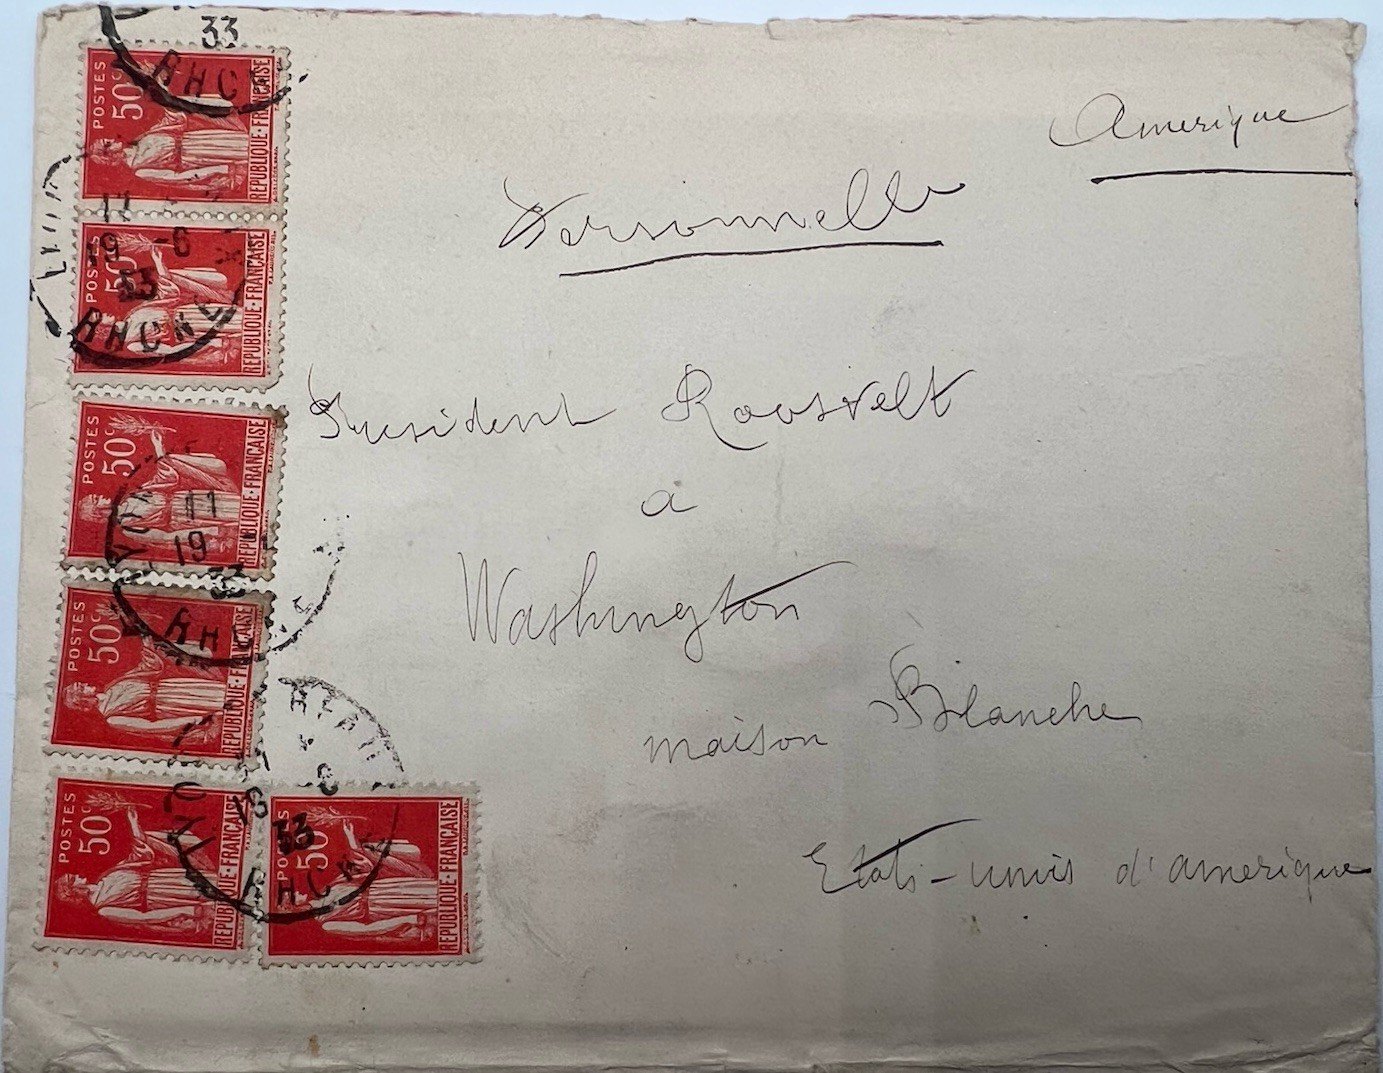 Amerique
Personnelle
President Roosvelt
a
Washington
maison Blanche
Etats-unis d'amerique
33
RHONE
POSTES
50c
REPUBLIQUE·FRANÇAISE
17
19 -6
33
RHONE
POSTES
50c
REPUBLIQUE·FRANÇAISE
POSTES
50c
REPUBLIQUE·FRANÇAISE
LYON
11
19
33
RHONE
POSTES
50c
REPUBLIQUE·FRANÇAISE
LYON
33
RHONE
POSTES
50c
REPUBLIQUE·FRANÇAISE
50
REPUBLIQUE·FRANÇAISE